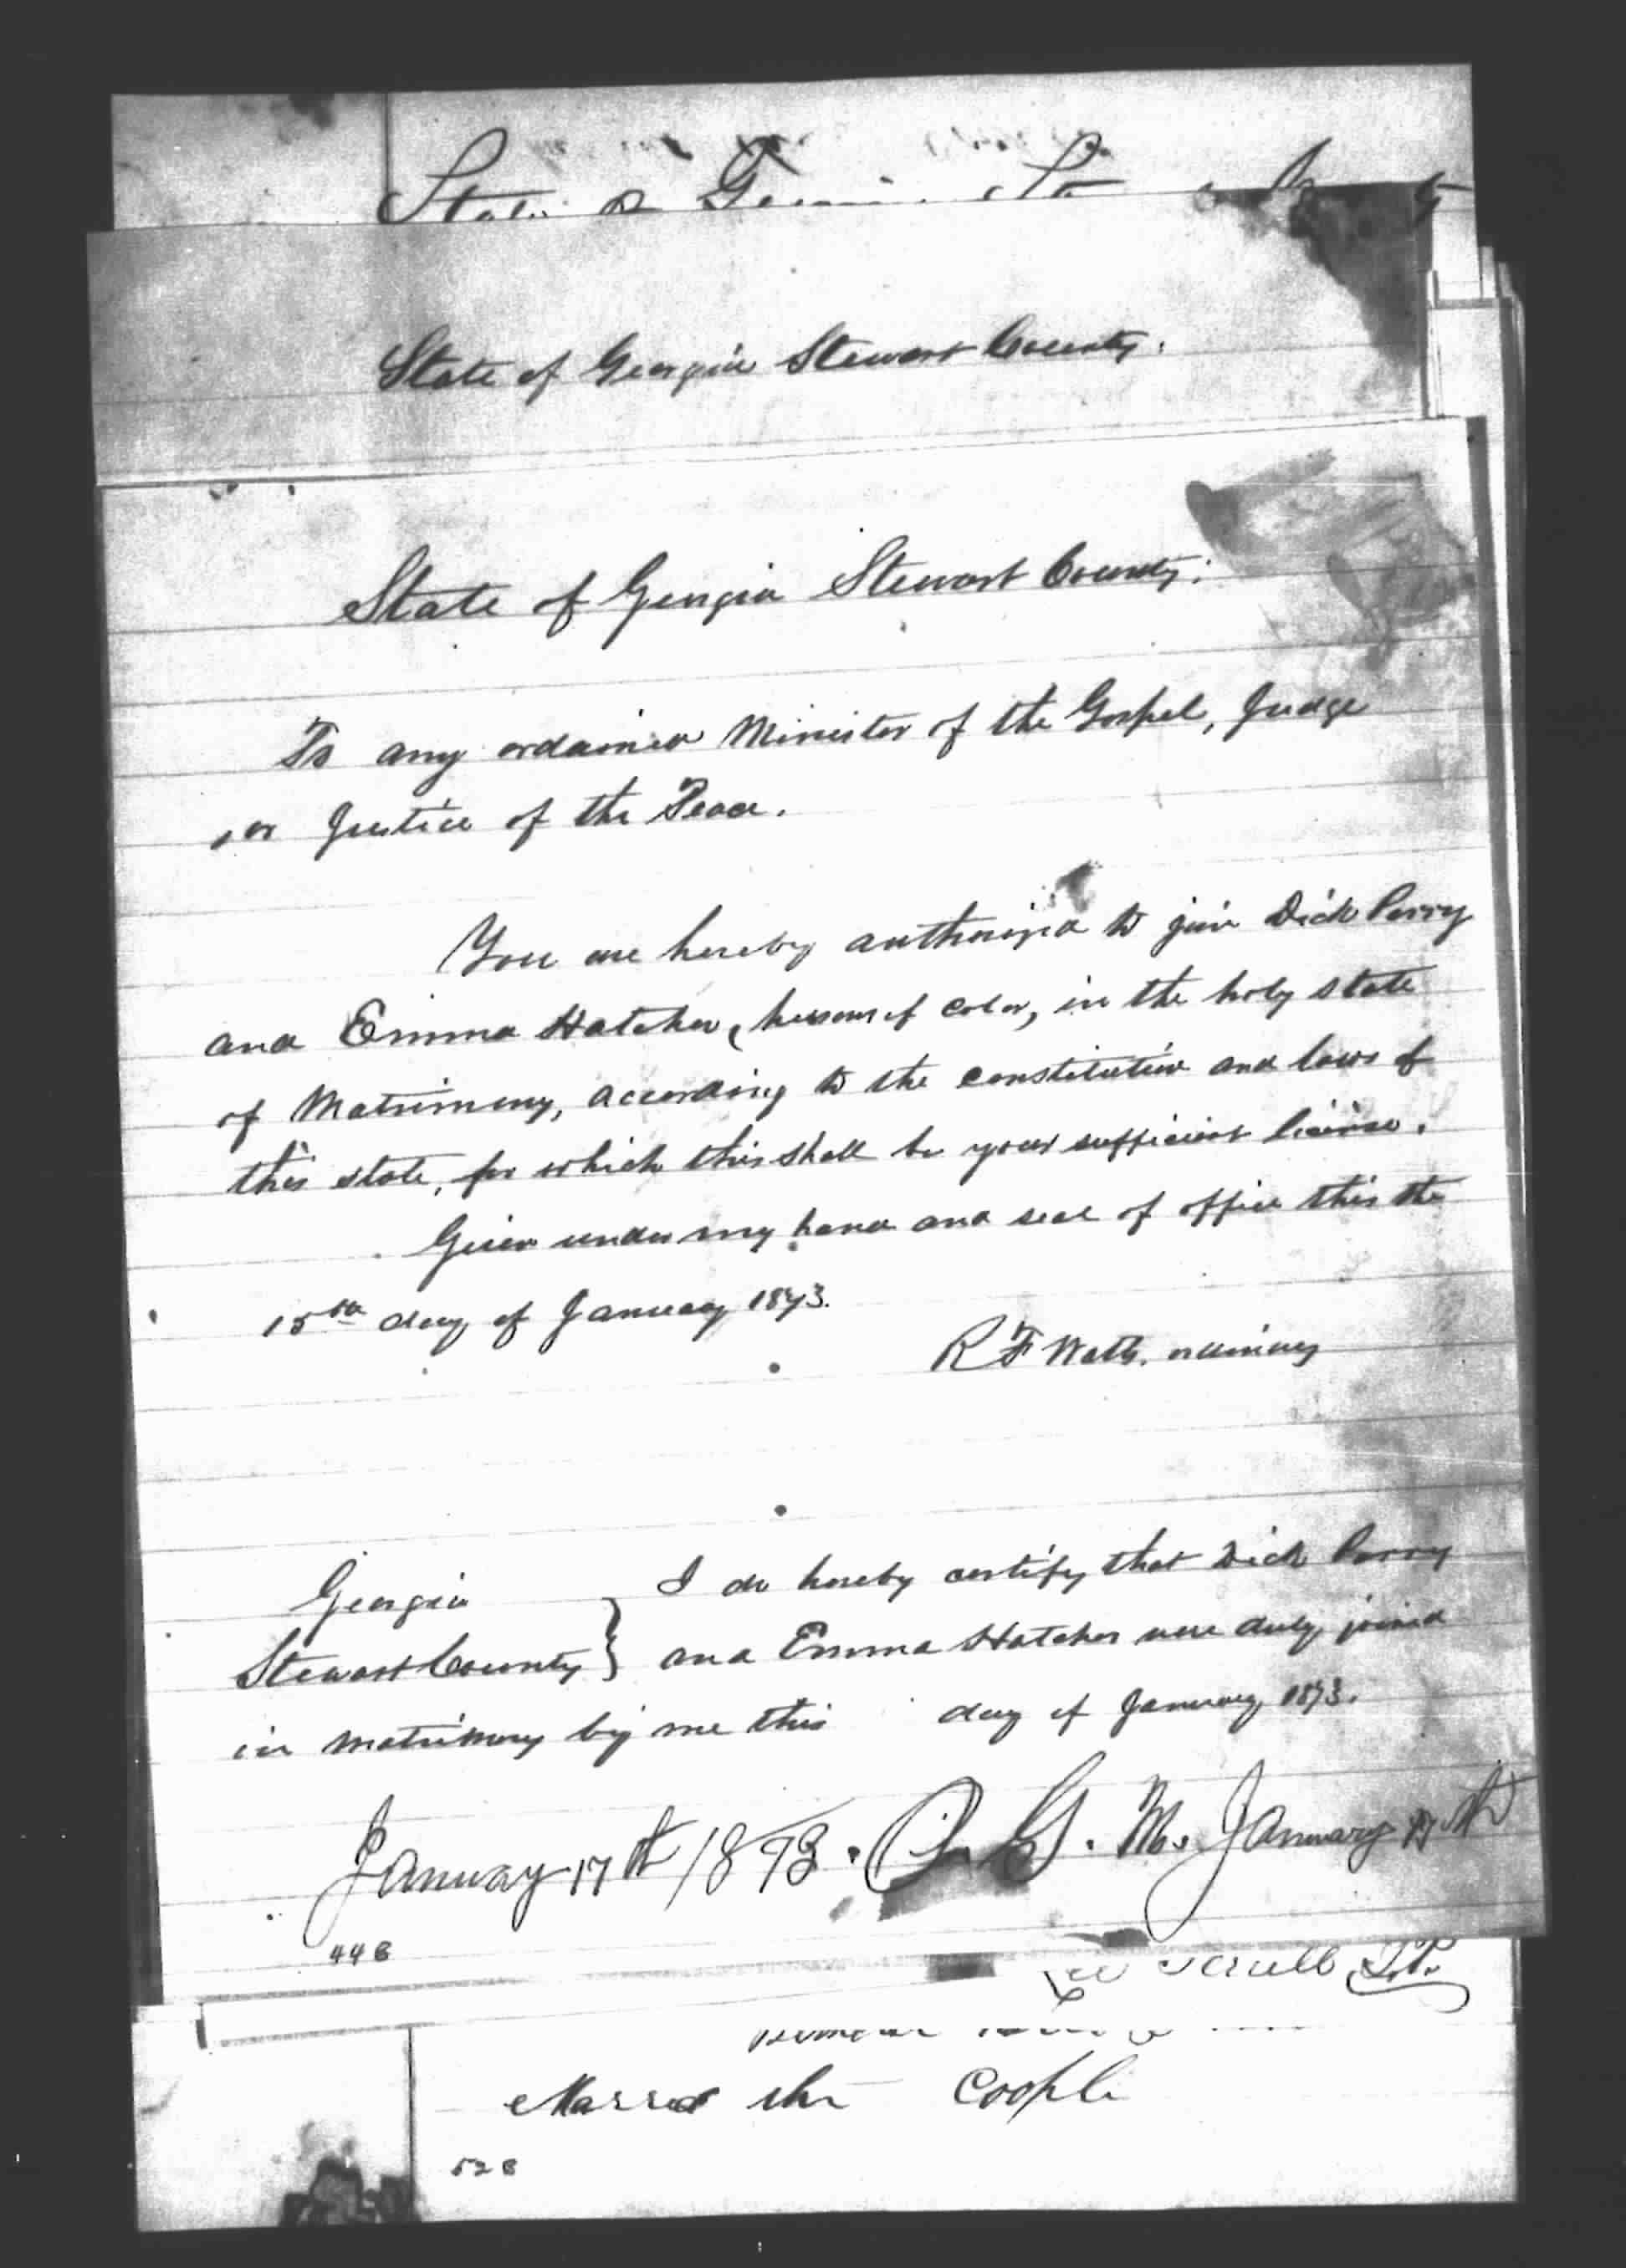 State of Georgia Stewart County:
State of Georgia Stewart County:
To any ordained Minister of the Gospel, Judge
or Justice of the Peace.
You are hereby authorized to join Dick Perry
and Emma Hatcher, persons of color, in the holy state
of Matrimony, according to the constitution and laws of
this state, for which this shall be your sufficient license.
Given under my hand and seal of office this the
15th day of January 1873.
R F Watts, ordinary
Georgia
Stewart County } I do hereby certify that Dick Perry
and Emma Hatcher were duly joined
in matrimony by me this day of January 1873.
January 17th 1873. G. M. January 17th
448
J.P.
Marred the Coople
528